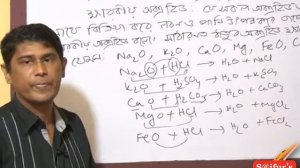 ক্ষারকীয় অক্সাইড : যে সকল অক্সাইড
সাথে বিক্রিয়া করে লবণ ও পানি উৎপন্ন করে তাদের
ক্ষারকীয় অক্সাইড বলে। সাধারণত ধাতুর অক্সাইড
যেমন: Na₂O, K₂O, CaO, Mg, FeO, C
Na₂O + HCl → H₂O + NaCl
K₂O + H₂SO₄ → H₂O + K₂SO₄
CaO + H₂CO₃ → H₂O + CaCO₃
MgO + HCl → H₂O + MgCl₂
FeO + HCl → H₂O + FeCl₂
Saifur's